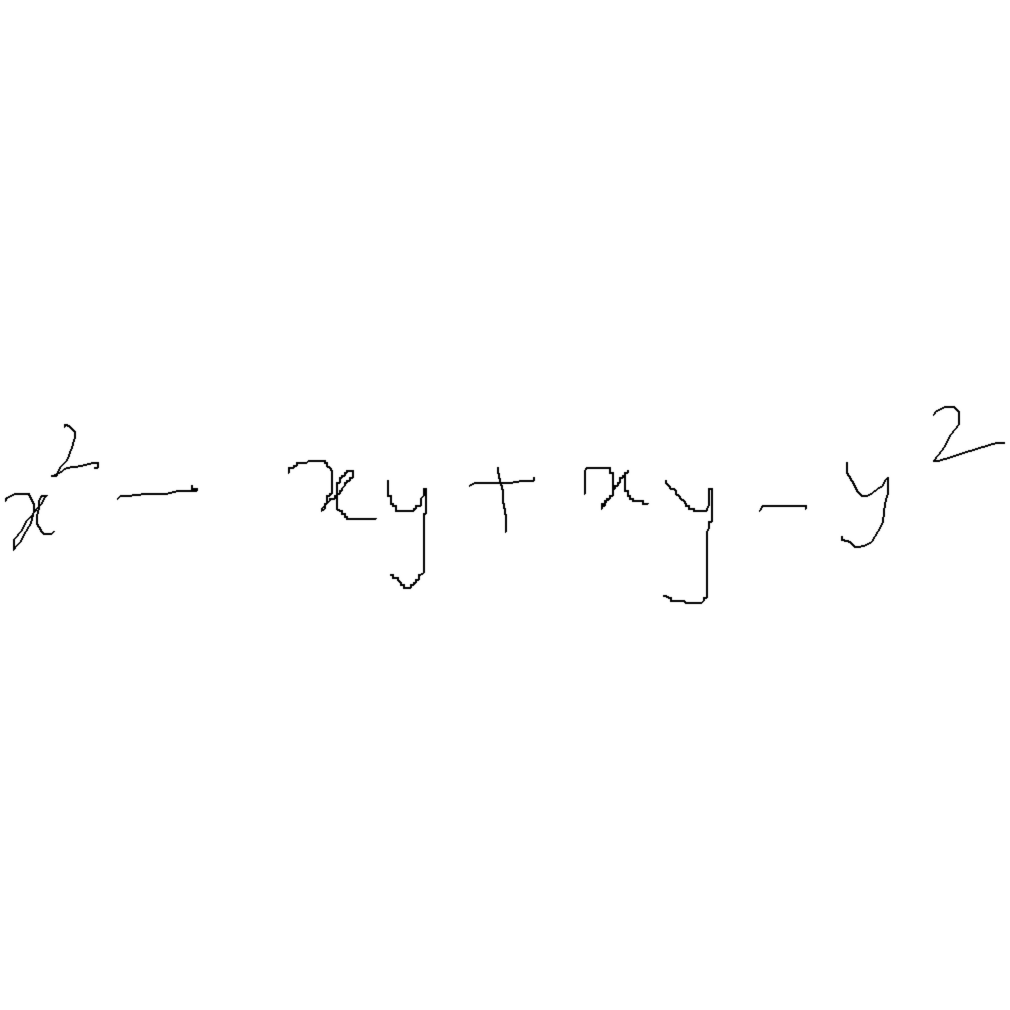 x² - xy + xy - y²